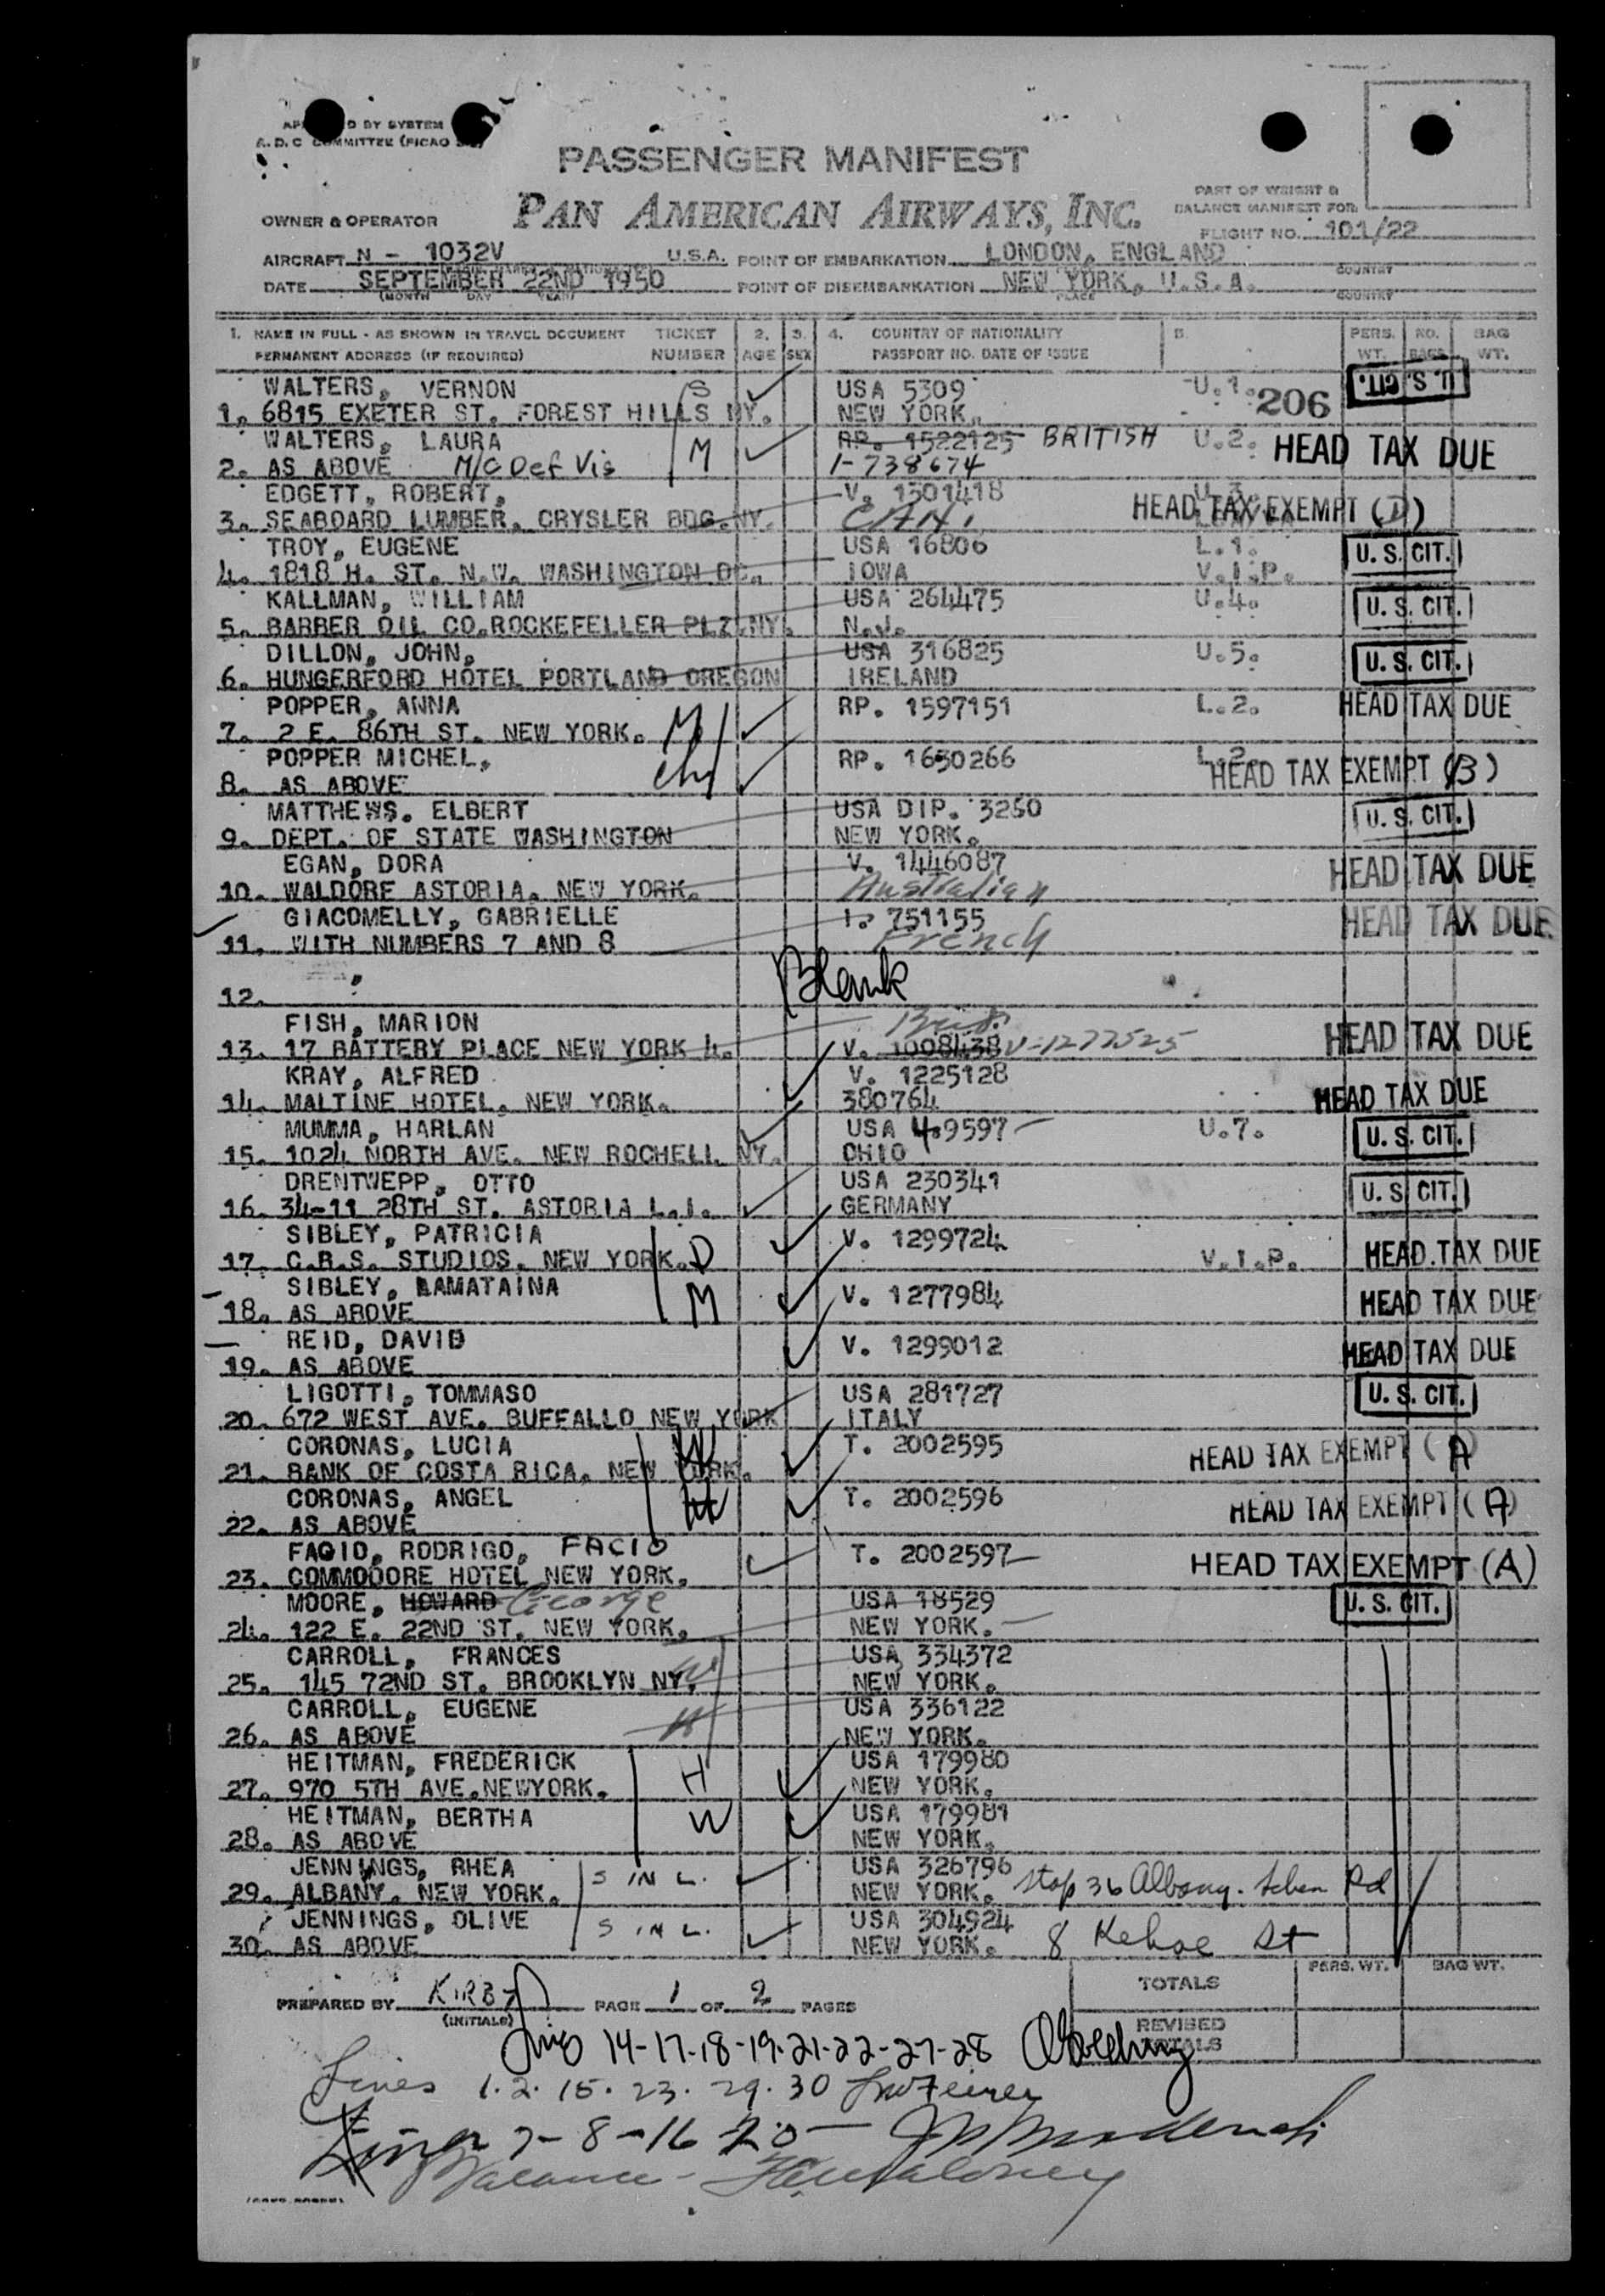 D BY SYSTEM
A.D.C COMMITTEE (PICAO
PASSENGER MANIFEST
PAN AMERICAN AIRWAYS, INC.
PART OF WEIGHT &
BALANCE MANIFEST FOR
OWNER & OPERATOR
FLIGHT NO. 101/22
AIRCRAFT N - 1032V U.S.A. POINT OF EMBARKATION LONDON, ENGLAND
COUNTRY
DATE SEPTEMBER 22ND 1950 POINT OF DISEMBARKATION NEW YORK, U.S.A.
(MONTH DAY YEAR) PLACE COUNTRY
1. NAME IN FULL - AS SHOWN IN TRAVEL DOCUMENT TICKET 2. 3. 4. COUNTRY OF NATIONALITY 5. PERS. NO. BAG
PERMANENT ADDRESS (IF REQUIRED) NUMBER AGE SEX PASSPORT NO. DATE OF ISSUE WT. BAGS WT.
WALTERS, VERNON S USA 5309 U.1. 206 U.S. CIT.
1. 6815 EXETER ST. FOREST HILLS NY. NEW YORK.
WALTERS, LAURA M RP. 1522125 BRITISH U.2. HEAD TAX DUE
2. AS ABOVE M/C Def Vis 1-738674
EDGETT, ROBERT, V. 1301418 U.3.
3. SEABOARD LUMBER. CRYSLER BDG.NY. CAN. HEAD TAX EXEMPT (D)
TROY, EUGENE USA 16806 L.1. U.S. CIT.
4. 1818 H. ST. N.W. WASHINGTON DC. IOWA V.I.P.
KALLMAN, WILLIAM USA 264475 U.4. U.S. CIT.
5. BARBER OIL CO.ROCKEFELLER PLZ.NY. N.J.
DILLON, JOHN, USA 316825 U.5. U.S. CIT.
6. HUNGERFORD HOTEL PORTLAND OREGON IRELAND
POPPER, ANNA M RP. 1597151 L.2. HEAD TAX DUE
7. 2 E. 86TH ST. NEW YORK.
POPPER MICHEL, chd RP. 1630266 L.2. HEAD TAX EXEMPT (B)
8. AS ABOVE
MATTHEWS. ELBERT USA DIP. 3260 U.S. CIT.
9. DEPT. OF STATE WASHINGTON NEW YORK.
EGAN, DORA V. 1446087 HEAD TAX DUE
10. WALDORE ASTORIA. NEW YORK. Australian
GIACOMELLY, GABRIELLE 1. 751155 HEAD TAX DUE
11. WITH NUMBERS 7 AND 8 French
12. Blank
FISH, MARION Brit. HEAD TAX DUE
13. 17 BATTERY PLACE NEW YORK 4. V. 1008438 V-1277525
KRAY, ALFRED V. 1225128
14. MALTINE HOTEL. NEW YORK. 380764 HEAD TAX DUE
MUMMA, HARLAN USA 4.9597 U.7. U.S. CIT.
15. 1024 NORTH AVE. NEW ROCHELL NY. OHIO
DRENTWEPP, OTTO USA 230341 U.S. CIT.
16. 34-11 28TH ST. ASTORIA L.I. GERMANY
SIBLEY, PATRICIA V. 1299724
17. C.B.S. STUDIOS. NEW YORK. D V.I.P. HEAD TAX DUE
SIBLEY, LAMATAINA M V. 1277984 HEAD TAX DUE
18. AS ABOVE
REID, DAVID V. 1299012 HEAD TAX DUE
19. AS ABOVE
LIGOTTI, TOMMASO USA 281727 U.S. CIT.
20. 672 WEST AVE. BUFFALLO NEW YORK ITALY
CORONAS, LUCIA W T. 2002595 HEAD TAX EXEMPT (A)
21. BANK OF COSTA RICA. NEW YORK.
CORONAS, ANGEL H T. 2002596 HEAD TAX EXEMPT (A)
22. AS ABOVE
FAGIO, RODRIGO, FACIO T. 2002597 HEAD TAX EXEMPT (A)
23. COMMODORE HOTEL NEW YORK.
MOORE, HOWARD George USA 18529 U.S. CIT.
24. 122 E. 22ND ST. NEW YORK. NEW YORK.
CARROLL, FRANCES USA 334372
25. 145 72ND ST. BROOKLYN NY. W NEW YORK.
CARROLL, EUGENE USA 336122
26. AS ABOVE H NEW YORK.
HEITMAN, FREDERICK H USA 179980
27. 970 5TH AVE.NEWYORK. NEW YORK.
HEITMAN, BERTHA W USA 179981
28. AS ABOVE NEW YORK.
JENNINGS, RHEA S IN L. USA 326796
29. ALBANY. NEW YORK. NEW YORK. Stop 36 Albany. Schen Rd
JENNINGS, OLIVE S IN L. USA 304924
30. AS ABOVE NEW YORK. 8 Kehoe St
PERS. WT. BAG WT.
TOTALS
PREPARED BY KIRBY PAGE 1 OF 2 PAGES
(INITIALS)
REVISED
TOTALS
14-17-18-19-21-22-27-28
Lines 1.2.15.23.29.30
Lines 7-8-16 20
Balance